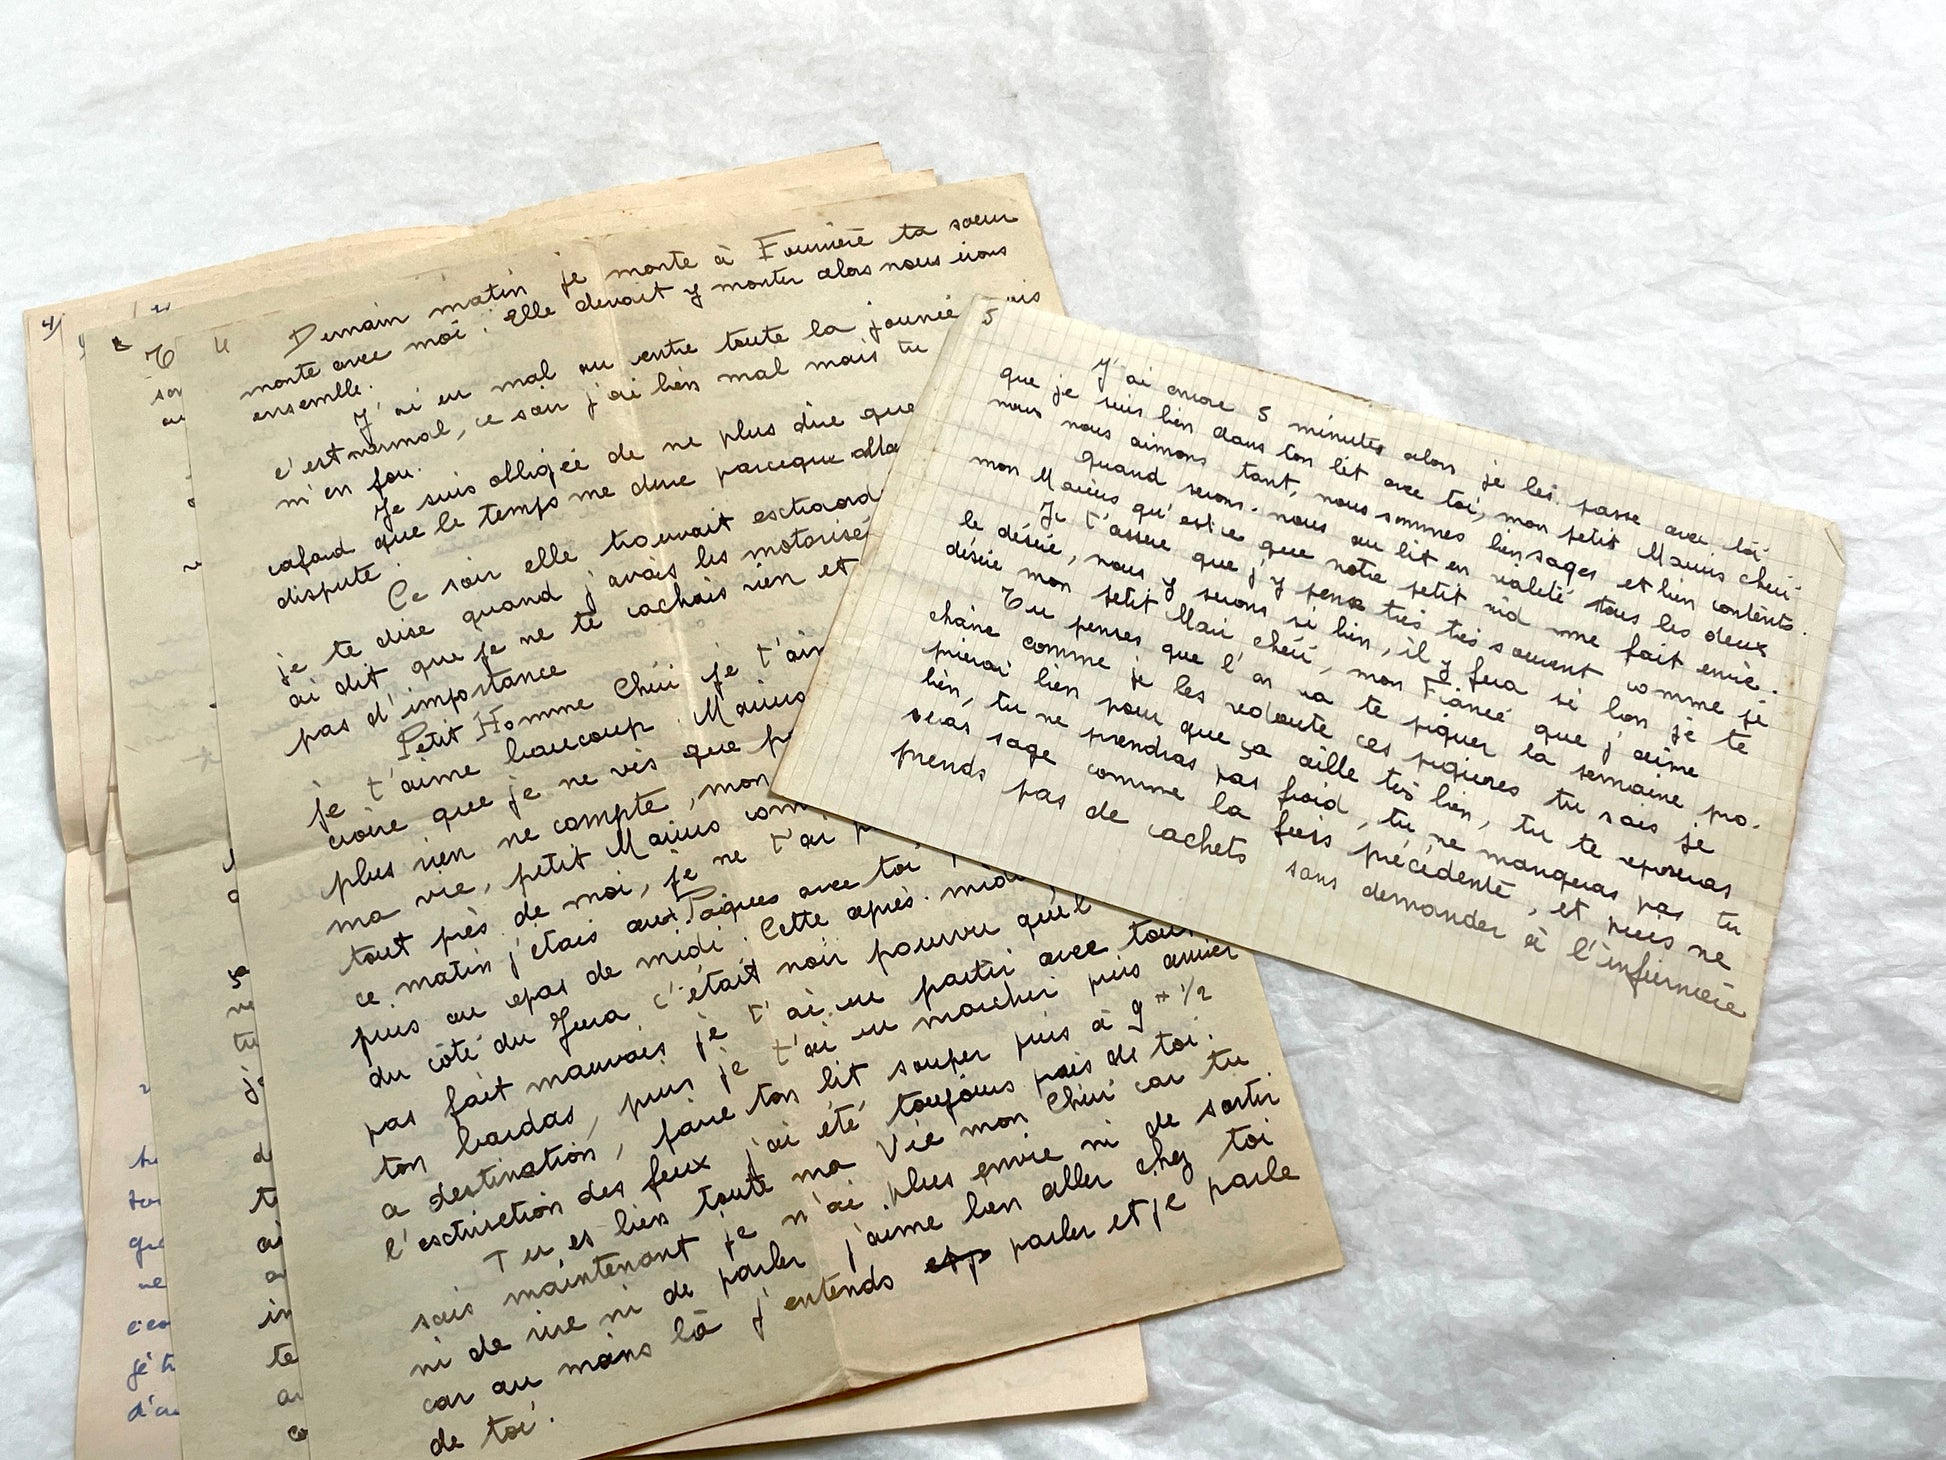 4/
4
Demain matin je monte à Fourvière ta soeur
monte avec moi. Elle devait y monter alors nous irons
ensemble.
J'ai eu mal au ventre toute la journée
c'est normal, ce soir j'ai bien mal mais tu
m'en fou.
Je suis obligée de ne plus dire que
cafard que le temps me dure parceque
dispute.
Ce soir elle trouvait
je te dise quand j'avais les
ai dit que je ne te cachais rien et
pas d'importance
Petit Homme Chéri je
je t'aime beaucoup. Marius
croire que je ne vis que
plus rien ne compte, mon
ma vie, petit Marius
tout près de moi, je ne t'ai
ce matin j'étais aux Pâques avec toi
puis au repas de midi. Cette après-midi
du côté du Jura c'était noir pourvu qu'il
pas fait mauvais je t'ai vu partir avec
ton bardas, puis je t'ai vu marcher puis arriver
a destination, faire ton lit souper puis à 9 H 1/2
l'esctinction des feux j'ai été toujours près de toi.
Tu es bien toute ma Vie mon Chéri car tu
sais maintenant je n'ai plus envie ni de sortir
ni de rire ni de parler j'aime bien aller chez toi
car au moins là j'entends parler et je parle
de toi.
5
J'ai encore 5 minutes alors je les passe avec toi
que je suis bien dans ton lit avec toi, mon petit Marius chéri
nous nous aimons tant, nous sommes bien sages et bien contents.
quand serons-nous au lit en réalité tous les deux
mon Marius qu'est ce que notre petit nid me fait envie.
Je t'assure que j'y pense très très souvent comme je
le désire, nous y serons si bien, il y fera si bon je te
désire mon petit Mari chéri, mon Fiancé que j'aime
Tu penses que l'on va te piquer la semaine pro-
chaine comme je les redoute ces piqures tu sais je
prierai bien pour que ça aille très bien, tu te reposeras
bien, tu ne prendras pas froid, tu ne manqueras pas tu
seras sage comme la fois précédente, et puis ne
prends pas de cachets sans demander à l'infirmière